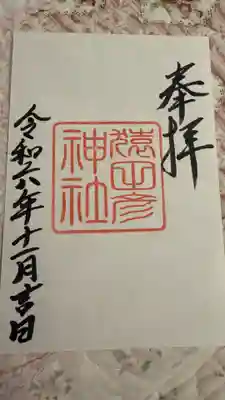 奉拝
猿田彦
神社
令和六年十一月吉日